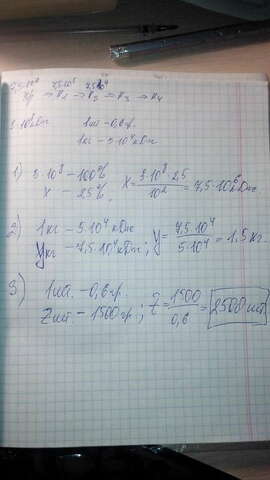 7,5·10⁶ 7,5·10⁵ 7,5·10⁴
→ К₁ → К₂ → К₃ → К₄
1 шт – 0,6 гр.
1 кг – 5·10⁴ кДж
1) 3·10⁸ – 100%
x – 25% , x = 3·10⁸·25 / 10² = 7,5·10⁶ кДж
2) 1 кг – 5·10⁴ кДж
y кг – 7,5·10⁴ кДж ; y = 7,5·10⁴ / 5·10⁴ = 1,5 кг.
3) 1 шт. – 0,6 гр.
Z шт. – 1500 гр. ; Z = 1500 / 0,6 = 2500 шт